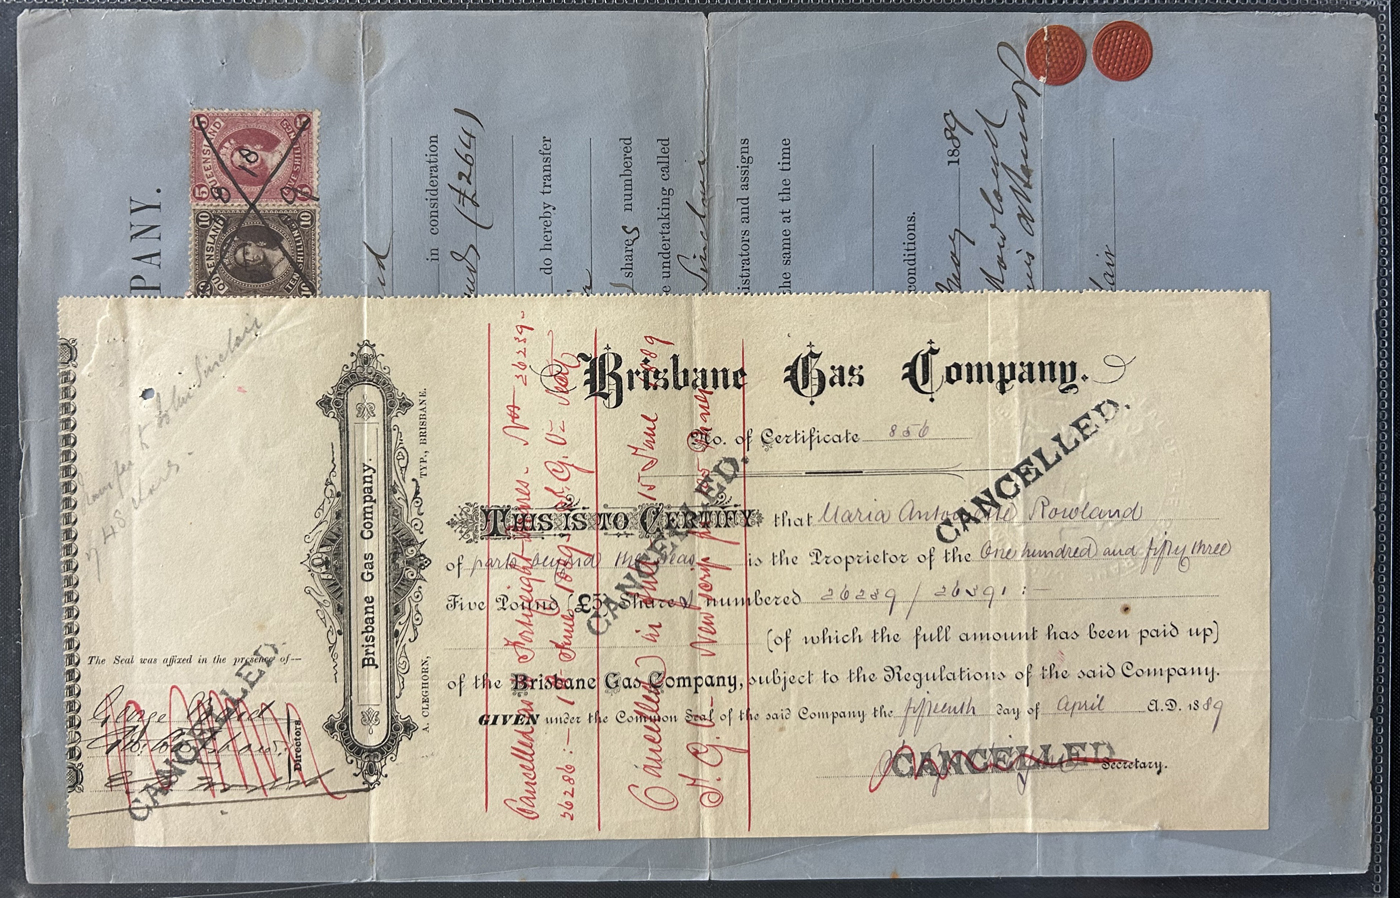 Brisbane Gas Company.
No. of Certificate 856
THIS IS TO CERTIFY that Maria Antoinette Rowland
of parts beyond the seas is the Proprietor of the One hundred and fifty three
Five Pound (£5) Shares numbered 26239/26391:-
(of which the full amount has been paid up)
of the Brisbane Gas Company, subject to the Regulations of the said Company.
GIVEN under the Common Seal of the said Company the fifteenth day of April A.D. 1889
Secretary.
CANCELLED.
CANCELLED.
CANCELLED
CANCELLED
Cancelled as Forty eight Shares - Nos 26239-
26286:-
Cancelled in full 15 June 1889
New scrip
Brisbane Gas Company.
A. CLEGHORN, TYP., BRISBANE.
Transfer to John Sinclair
of 48 shares.
The Seal was affixed in the presence of—
George
Directors
PANY.
QUEENSLAND
5
18
8
QUEENSLAND
10
in consideration
(£264)
do hereby transfer
shares numbered
e undertaking called
Sinclair
istrators and assigns
he same at the time
conditions.
May 1889
Rowland
lair